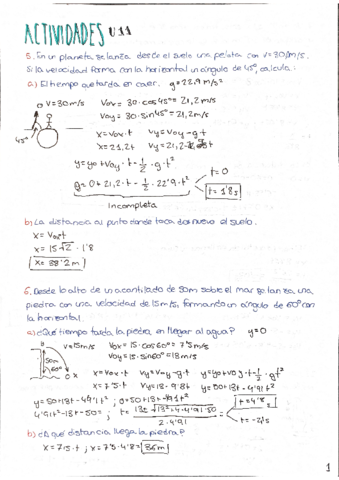 ACTIVIDADES U11
5. En un planeta se lanza desde el suelo una pelota con v=30m/s.
Si la velocidad forma con la horizontal un ángulo de 45°, calcula:
a) El tiempo que tarda en caer. g=22,9m/s²
v=30m/s
45°
Vox= 30·cos45°= 21,2m/s
Voy= 30·sin45°= 21,2m/s
x=Vox·t Vy=Voy-g·t
x=21,2t
y=yo+Voy·t-1/2·g·t²
0+21,2·t-1/2·22'9·t²
t=0
t=1'8s
Incompleta
b) La distancia al punto donde toca de nuevo el suelo.
x=Vox·t
x=15√2·1'8
x=38'2m
6. Desde lo alto de un acantilado de 50m sobre el mar se lanza una
piedra con una velocidad de 15m/s, formando un ángulo de 60° con
la horizontal.
a) ¿Qué tiempo tarda la piedra en llegar al agua? y=0
V=15m/s
50m
60°
Vox=15·cos60°=7'5m/s
Voy=15·sin60°=13m/s
x=Vox·t Vy=Voy-g·t y=yo+voy·t-1/2gt²
x=7'5·t Vy=13-9'8t y=50+13t-4'9t²
t=4'8s
b) ¿A qué distancia llega la piedra?
x=7,5·t; x=7'5·4'8= 36m
1